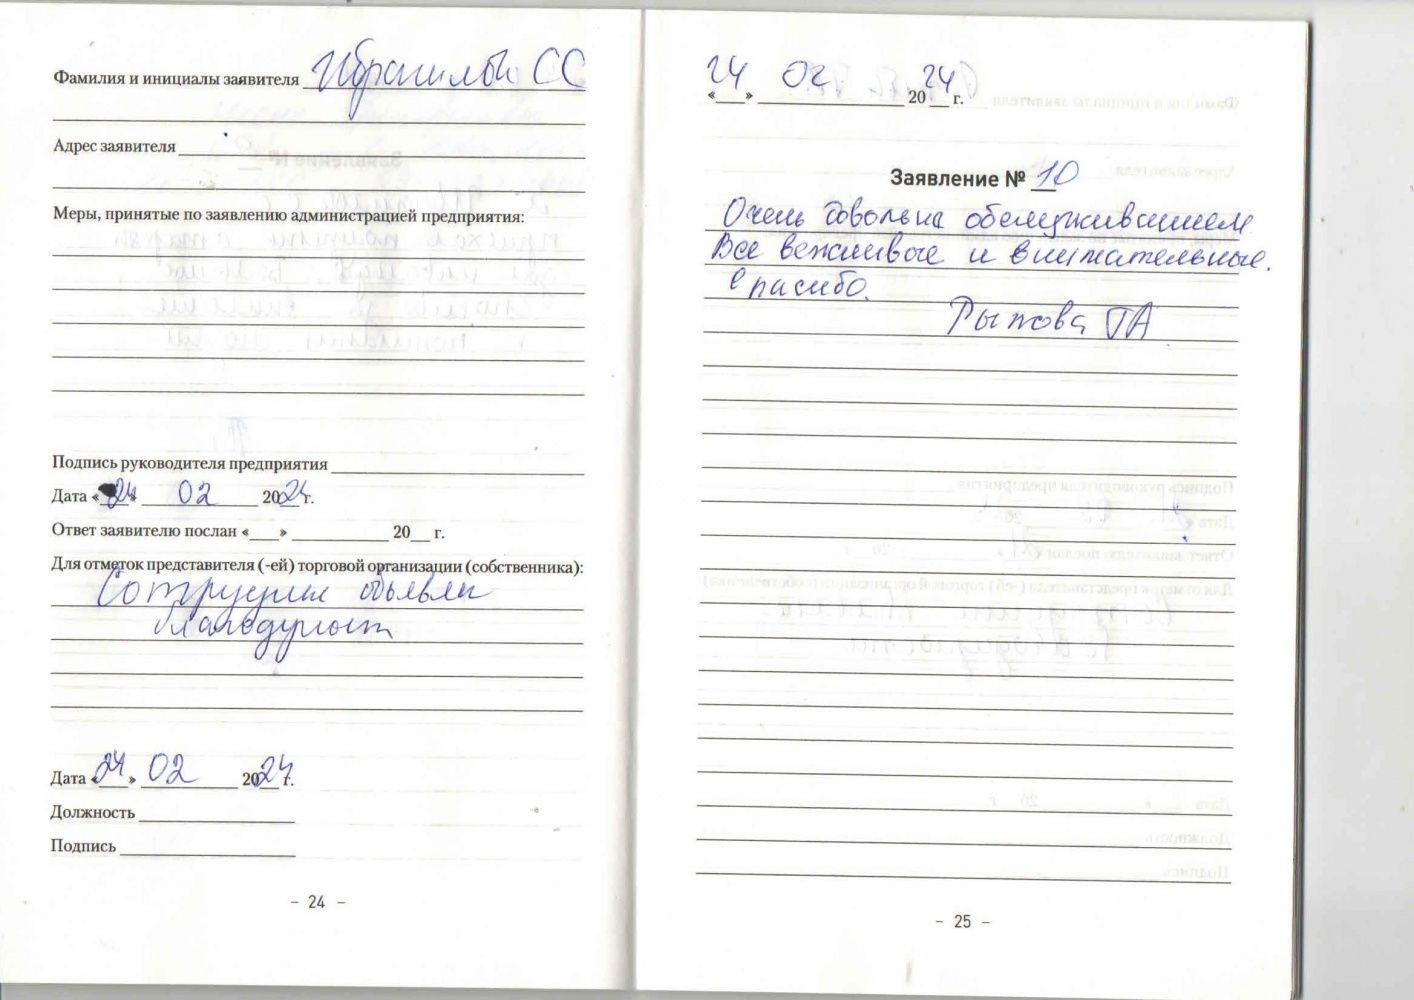 Фамилия и инициалы заявителя Ибрагимов СС
Адрес заявителя
Меры, принятые по заявлению администрацией предприятия:
Подпись руководителя предприятия
Дата «24» 02 2024г.
Ответ заявителю послан «___» ____________ 20__ г.
Для отметок представителя (-ей) торговой организации (собственника):
Сотруднику объявлен
благодарност
Дата «24» 02 2024 г.
Должность
Подпись
- 24 -
«24» 02 2024 г.
Заявление № 10
Очень довольна обслуживанием
Все вежливые и внимательные.
Спасибо.
Рыжова ГА
- 25 -